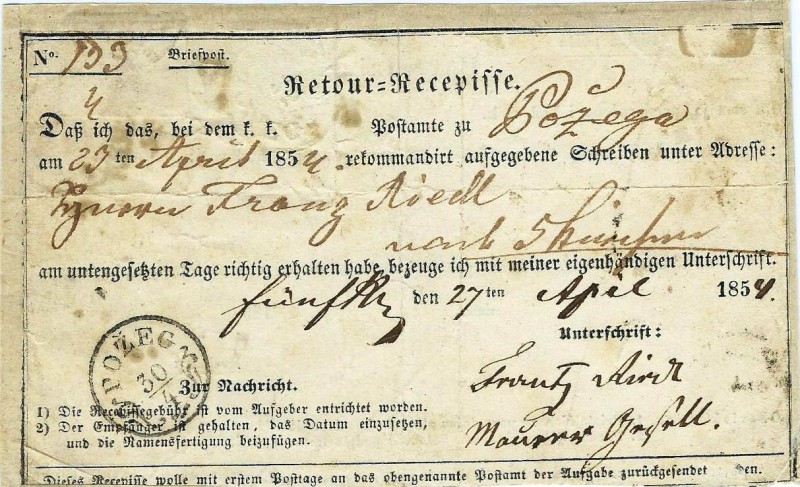 No. 193 Briefpost.
Retour-Recepisse.
Daß ich das, bei dem k. k. Postamte zu Požega
am 23ten April 1854. rekommandirt aufgegebene Schreiben unter Adresse:
Franz Riedl
nach
am untengesetzten Tage richtig erhalten habe, bezeuge ich mit meiner eigenhändigen Unterschrift.
den 27ten April 1854.
Unterschrift:
POŽEGA
30
4
Zur Nachricht.
Frantz Riedl
Maurer Gesell.
1) Die Recepissegebühr ist vom Aufgeber entrichtet worden.
2) Der Empfänger ist gehalten, das Datum einzusetzen,
und die Namensfertigung beizufügen.
Dieses Recepisse wolle mit erstem Posttage an das obengenannte Postamt der Aufgabe zurückgesendet